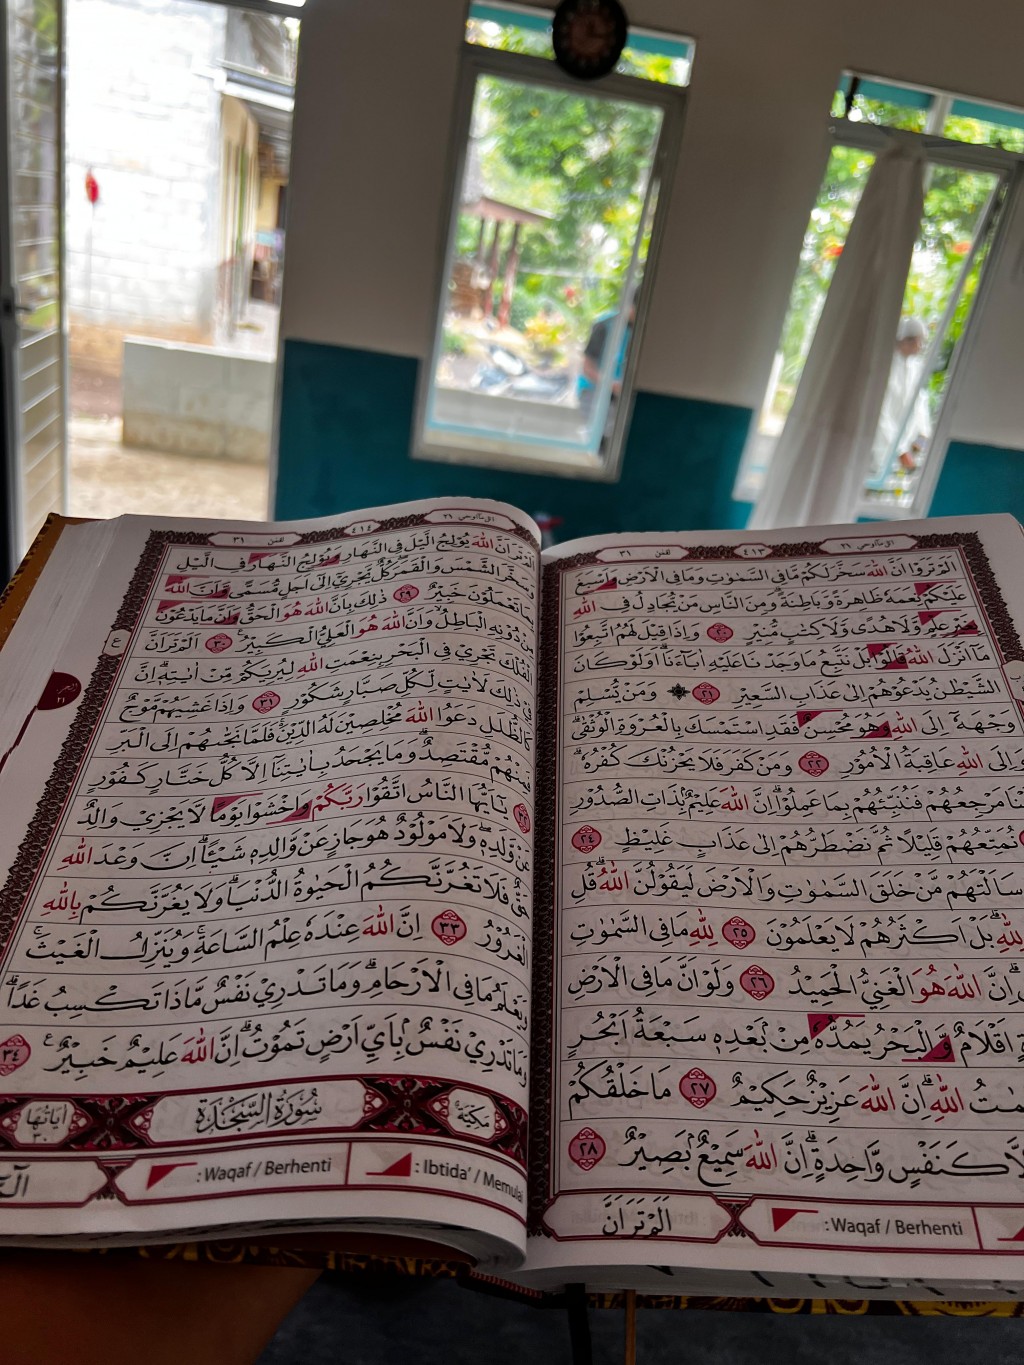 اتل مآاوحي ٢١
٤١٣
لقمن ٣١
اَلَمْ تَرَوْا اَنَّ اللّٰهَ سَخَّرَ لَكُمْ مَّا فِى السَّمٰوٰتِ وَمَا فِى الْاَرْضِ وَاَسْبَغَ
عَلَيْكُمْ نِعَمَهٗ ظَاهِرَةً وَّبَاطِنَةً ۗوَمِنَ النَّاسِ مَنْ يُّجَادِلُ فِى اللّٰهِ
بِغَيْرِ عِلْمٍ وَّلَا هُدًى وَّلَا كِتٰبٍ مُّنِيْرٍ ٢٠ وَاِذَا قِيْلَ لَهُمُ اتَّبِعُوْا
مَآ اَنْزَلَ اللّٰهُ قَالُوْا بَلْ نَتَّبِعُ مَا وَجَدْنَا عَلَيْهِ اٰبَاۤءَنَاۗ اَوَلَوْ كَانَ
الشَّيْطٰنُ يَدْعُوْهُمْ اِلٰى عَذَابِ السَّعِيْرِ ٢١ ۞ وَمَنْ يُّسْلِمْ
وَجْهَهٗٓ اِلَى اللّٰهِ وَهُوَ مُحْسِنٌ فَقَدِ اسْتَمْسَكَ بِالْعُرْوَةِ الْوُثْقٰىۗ
وَاِلَى اللّٰهِ عَاقِبَةُ الْاُمُوْرِ ٢٢ وَمَنْ كَفَرَ فَلَا يَحْزُنْكَ كُفْرُهٗۗ
نَا مَرْجِعُهُمْ فَنُنَبِّئُهُمْ بِمَا عَمِلُوْاۗ اِنَّ اللّٰهَ عَلِيْمٌۢ بِذَاتِ الصُّدُوْرِ
نُمَتِّعُهُمْ قَلِيْلًا ثُمَّ نَضْطَرُّهُمْ اِلٰى عَذَابٍ غَلِيْظٍ ٢٤
سَاَلْتَهُمْ مَّنْ خَلَقَ السَّمٰوٰتِ وَالْاَرْضَ لَيَقُوْلُنَّ اللّٰهُ ۗقُلِ
لِلّٰهِ ۗبَلْ اَكْثَرُهُمْ لَا يَعْلَمُوْنَ ٢٥ لِلّٰهِ مَا فِى السَّمٰوٰتِ
اِنَّ اللّٰهَ هُوَ الْغَنِيُّ الْحَمِيْدُ ٢٦ وَلَوْ اَنَّ مَا فِى الْاَرْضِ
اَقْلَامٌ وَّالْبَحْرُ يَمُدُّهٗ مِنْۢ بَعْدِهٖ سَبْعَةُ اَبْحُرٍ
مٰتُ اللّٰهِ ۗاِنَّ اللّٰهَ عَزِيْزٌ حَكِيْمٌ ٢٧ مَا خَلْقُكُمْ
اِلَّا كَنَفْسٍ وَّاحِدَةٍ ۗاِنَّ اللّٰهَ سَمِيْعٌۢ بَصِيْرٌ ٢٨
اَلَمْ تَرَ اَنَّ
: Waqaf / Berhenti
اتل مآاوحي ٢١
٤١٤
لقمن ٣١
اَلَمْ تَرَ اَنَّ اللّٰهَ يُوْلِجُ الَّيْلَ فِى النَّهَارِ وَيُوْلِجُ النَّهَارَ فِى الَّيْلِ
وَسَخَّرَ الشَّمْسَ وَالْقَمَرَۖ كُلٌّ يَّجْرِيْٓ اِلٰٓى اَجَلٍ مُّسَمًّى وَّاَنَّ اللّٰهَ
بِمَا تَعْمَلُوْنَ خَبِيْرٌ ٢٩ ذٰلِكَ بِاَنَّ اللّٰهَ هُوَ الْحَقُّ وَاَنَّ مَا يَدْعُوْنَ
مِنْ دُوْنِهِ الْبَاطِلُۙ وَاَنَّ اللّٰهَ هُوَ الْعَلِيُّ الْكَبِيْرُ ࣖ ٣٠ اَلَمْ تَرَ اَنَّ
الْفُلْكَ تَجْرِيْ فِى الْبَحْرِ بِنِعْمَتِ اللّٰهِ لِيُرِيَكُمْ مِّنْ اٰيٰتِهٖۗ اِنَّ
فِيْ ذٰلِكَ لَاٰيٰتٍ لِّكُلِّ صَبَّارٍ شَكُوْرٍ ٣١ وَاِذَا غَشِيَهُمْ مَّوْجٌ
كَالظُّلَلِ دَعَوُا اللّٰهَ مُخْلِصِيْنَ لَهُ الدِّيْنَ ەۚ فَلَمَّا نَجّٰىهُمْ اِلَى الْبَرِّ
فَمِنْهُمْ مُّقْتَصِدٌۗ وَمَا يَجْحَدُ بِاٰيٰتِنَآ اِلَّا كُلُّ خَتَّارٍ كَفُوْرٍ
٣٢ يٰٓاَيُّهَا النَّاسُ اتَّقُوْا رَبَّكُمْ وَاخْشَوْا يَوْمًا لَّا يَجْزِيْ وَالِدٌ
عَنْ وَّلَدِهٖۖ وَلَا مَوْلُوْدٌ هُوَ جَازٍ عَنْ وَّالِدِهٖ شَيْـًٔاۗ اِنَّ وَعْدَ اللّٰهِ
حَقٌّ فَلَا تَغُرَّنَّكُمُ الْحَيٰوةُ الدُّنْيَاۗ وَلَا يَغُرَّنَّكُمْ بِاللّٰهِ
الْغَرُوْرُ ٣٣ اِنَّ اللّٰهَ عِنْدَهٗ عِلْمُ السَّاعَةِۚ وَيُنَزِّلُ الْغَيْثَۚ
وَيَعْلَمُ مَا فِى الْاَرْحَامِۗ وَمَا تَدْرِيْ نَفْسٌ مَّاذَا تَكْسِبُ غَدًاۗ
وَمَا تَدْرِيْ نَفْسٌۢ بِاَيِّ اَرْضٍ تَمُوْتُۗ اِنَّ اللّٰهَ عَلِيْمٌ خَبِيْرٌ ࣖ ٣٤
مَكِّيَّة
سُوْرَةُ السَّجْدَةِ
اٰيَاتُهَا ٣٠
: Ibtida' / Memulai
: Waqaf / Berhenti